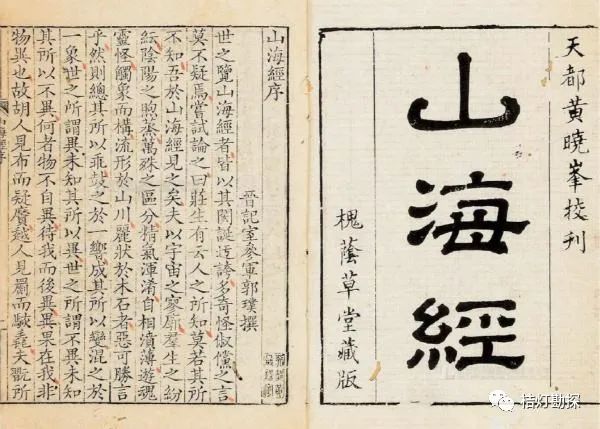 天都黃曉峯挍刊
山海經
槐蔭草堂藏版
山海經序
晉記室參軍郭璞撰
世之覽山海經者皆以其閎誕迂誇多奇怪俶儻之言
莫不疑焉嘗試論之曰莊生有云人之所知莫若其所
不知吾於山海經見之矣夫以宇宙之寥廓羣生之紛
紜陰陽之煦蒸萬殊之區分精氣渾淆自相濆薄遊魂
靈怪觸象而構流形於山川麗狀於木石者惡可勝言
乎然則總其所以乖鼓之於一響成其所以變混之於
一象世之所謂異未知其所以異世之所謂不異未知
其所以不異何者物不自異待我而後異異果在我非
物異也故胡人見布而疑黂越人見罽而駭毳夫翫所
桔灯勘探